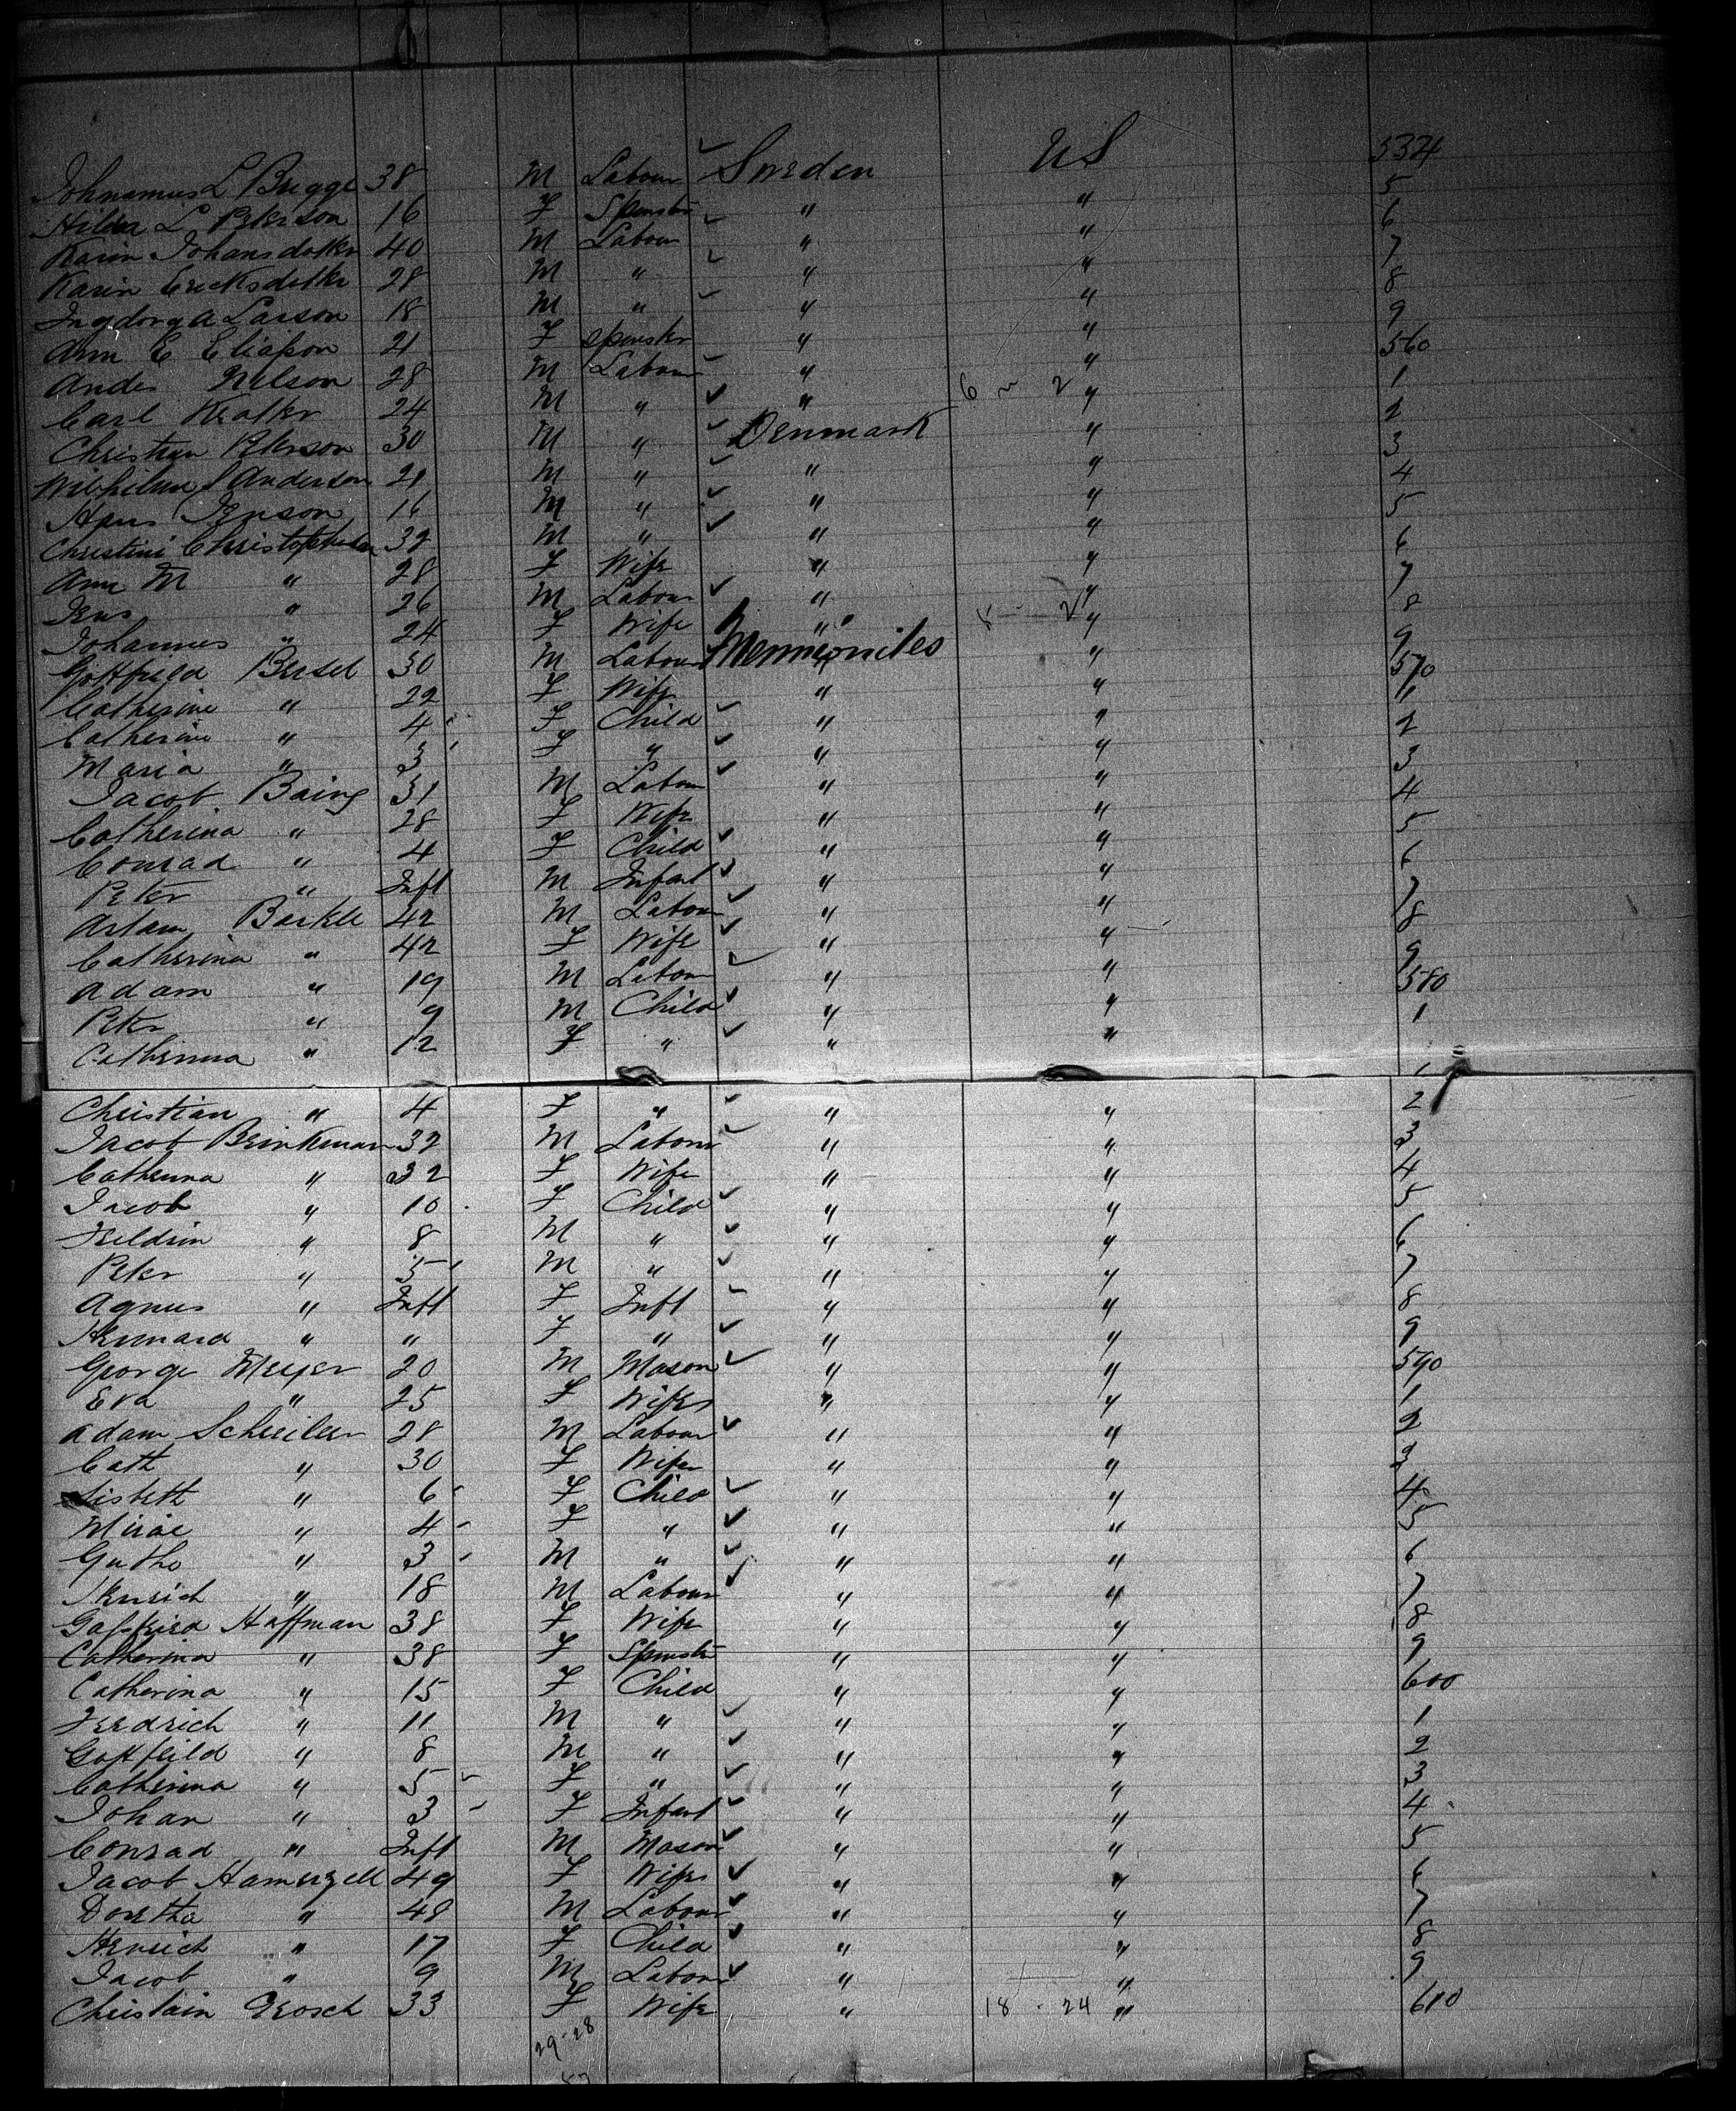 Johnamus L Brigge 38 M Labour Sweden US 5324
Hilda L Peterson 16 F Spinster " " 5
Karin Johansdotter 40 M Labour " " 6
Karin Ericksdotter 28 M " " " 7
Ingdorg a Larson 18 M " " " 8
Ann E Eliasson 21 F Spinster " " 9
Andes Nelson 28 M Labour " " 560
Carl Kralkr 24 M " " 6 ~ 2 " 1
Christian Peterson 30 M " Denmark " 2
Wilhilm S Anderson 21 M " " " 3
Hans Jenson 16 M " " " 4
Christini Christophersen 32 M " " " 5
Ann M " 28 F Wife " " 6
Jens " 26 M Labour " " 7
Johannes " 24 F Wife " " 8
Gottfreld Beisel 30 M Labour Mennionites " 9
Catherine " 22 F Wife " " 570
Catherine " 4 F Child " " 11
Maria " 3 F " " " 2
Jacob Baing 31 M Labour " " 3
Catherina " 28 F Wife " " 4
Conrad " 4 F Child " " 5
Peter " Inft M Infant " " 6
Adam Barkel 42 M Labour " " 7
Catherina " 42 F Wife " " 8
Adam " 19 M Labour " " 9
Peter " 9 M Child " " 580
Catherina " 12 F " " " 1
Christian " 4 F " " " 2
Jacob Brinkman 32 M Labour " " 3
Catherina " 32 F Wife " " 4
Jacob " 10 F Child " " 5
Feildrin " 8 M " " " 6
Peter " 5 M " " " 7
Agnus " Inft F Inft " " 8
Hennard " " F " " " 9
George Meyer 20 M Mason " " 590
Eva " 25 F Wife " " 1
Adam Scheilur 28 M Labour " " 2
Cath " 30 F Wife " " 3
Lisbeth " 6 F Child " " 4
Miriae " 4 F " " " 5
Gutho " 3 M " " " 6
Henrich " 18 M Labour " " 7
Gafreied Hoffman 38 F Wife " " 8
Catherina " 38 F Spinster " " 9
Catherina " 15 F Child " " 600
Fredrich " 11 M " " " 1
Gottfeild " 8 M " " " 2
Catherina " 5 F " " " 3
Johan " 3 F Infant " " 4
Conrad " Inft M Mason " " 5
Jacob Hamerzell 49 F Wife " " 6
Doretha " 48 M Labour " " 7
Henrich " 17 F Child " " 8
Jacob " 9 M Labour " " 9
Christain Grosch 33 F Wife " 18 - 24 " 610
29-28